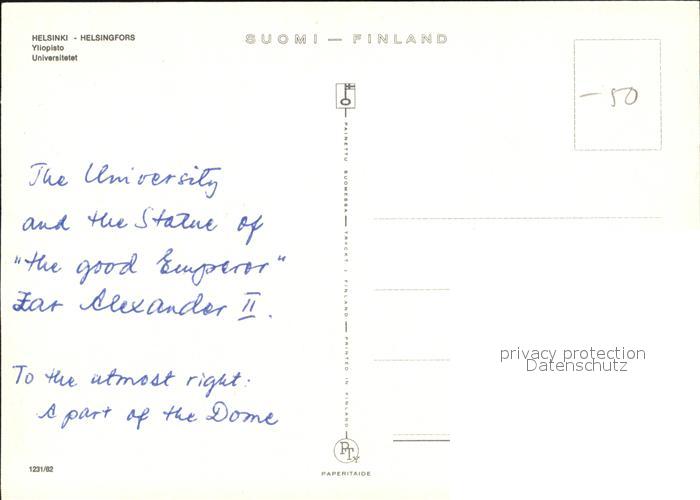 HELSINKI - HELSINGFORS
Yliopisto
Universitetet
SUOMI — FINLAND
—50
PAINETTU SUOMESSA — TRYCKT I FINLAND — PRINTED IN FINLAND
The University
and the Statue of
"the good Emperor"
Zar Alexander II.
To the utmost right:
A part of the Dome
privacy protection
Datenschutz
1231/82
PTy
PAPERITAIDE